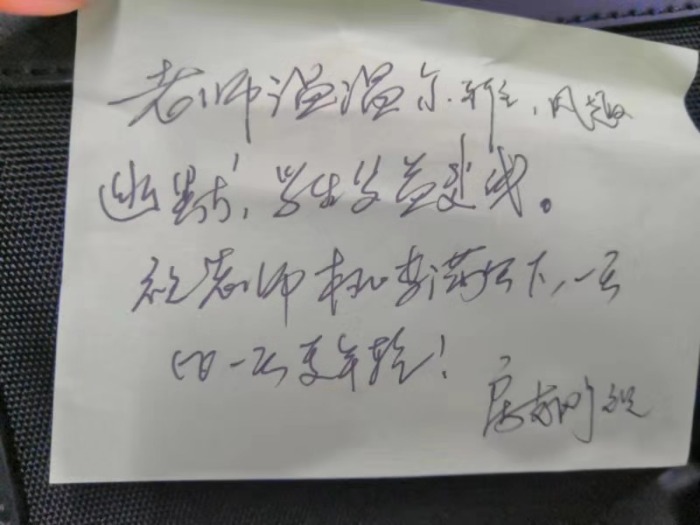 老师温温尔雅，风趣
幽默，学生受益
祝老师桃李满天下，一天
比一天更年轻！
祝